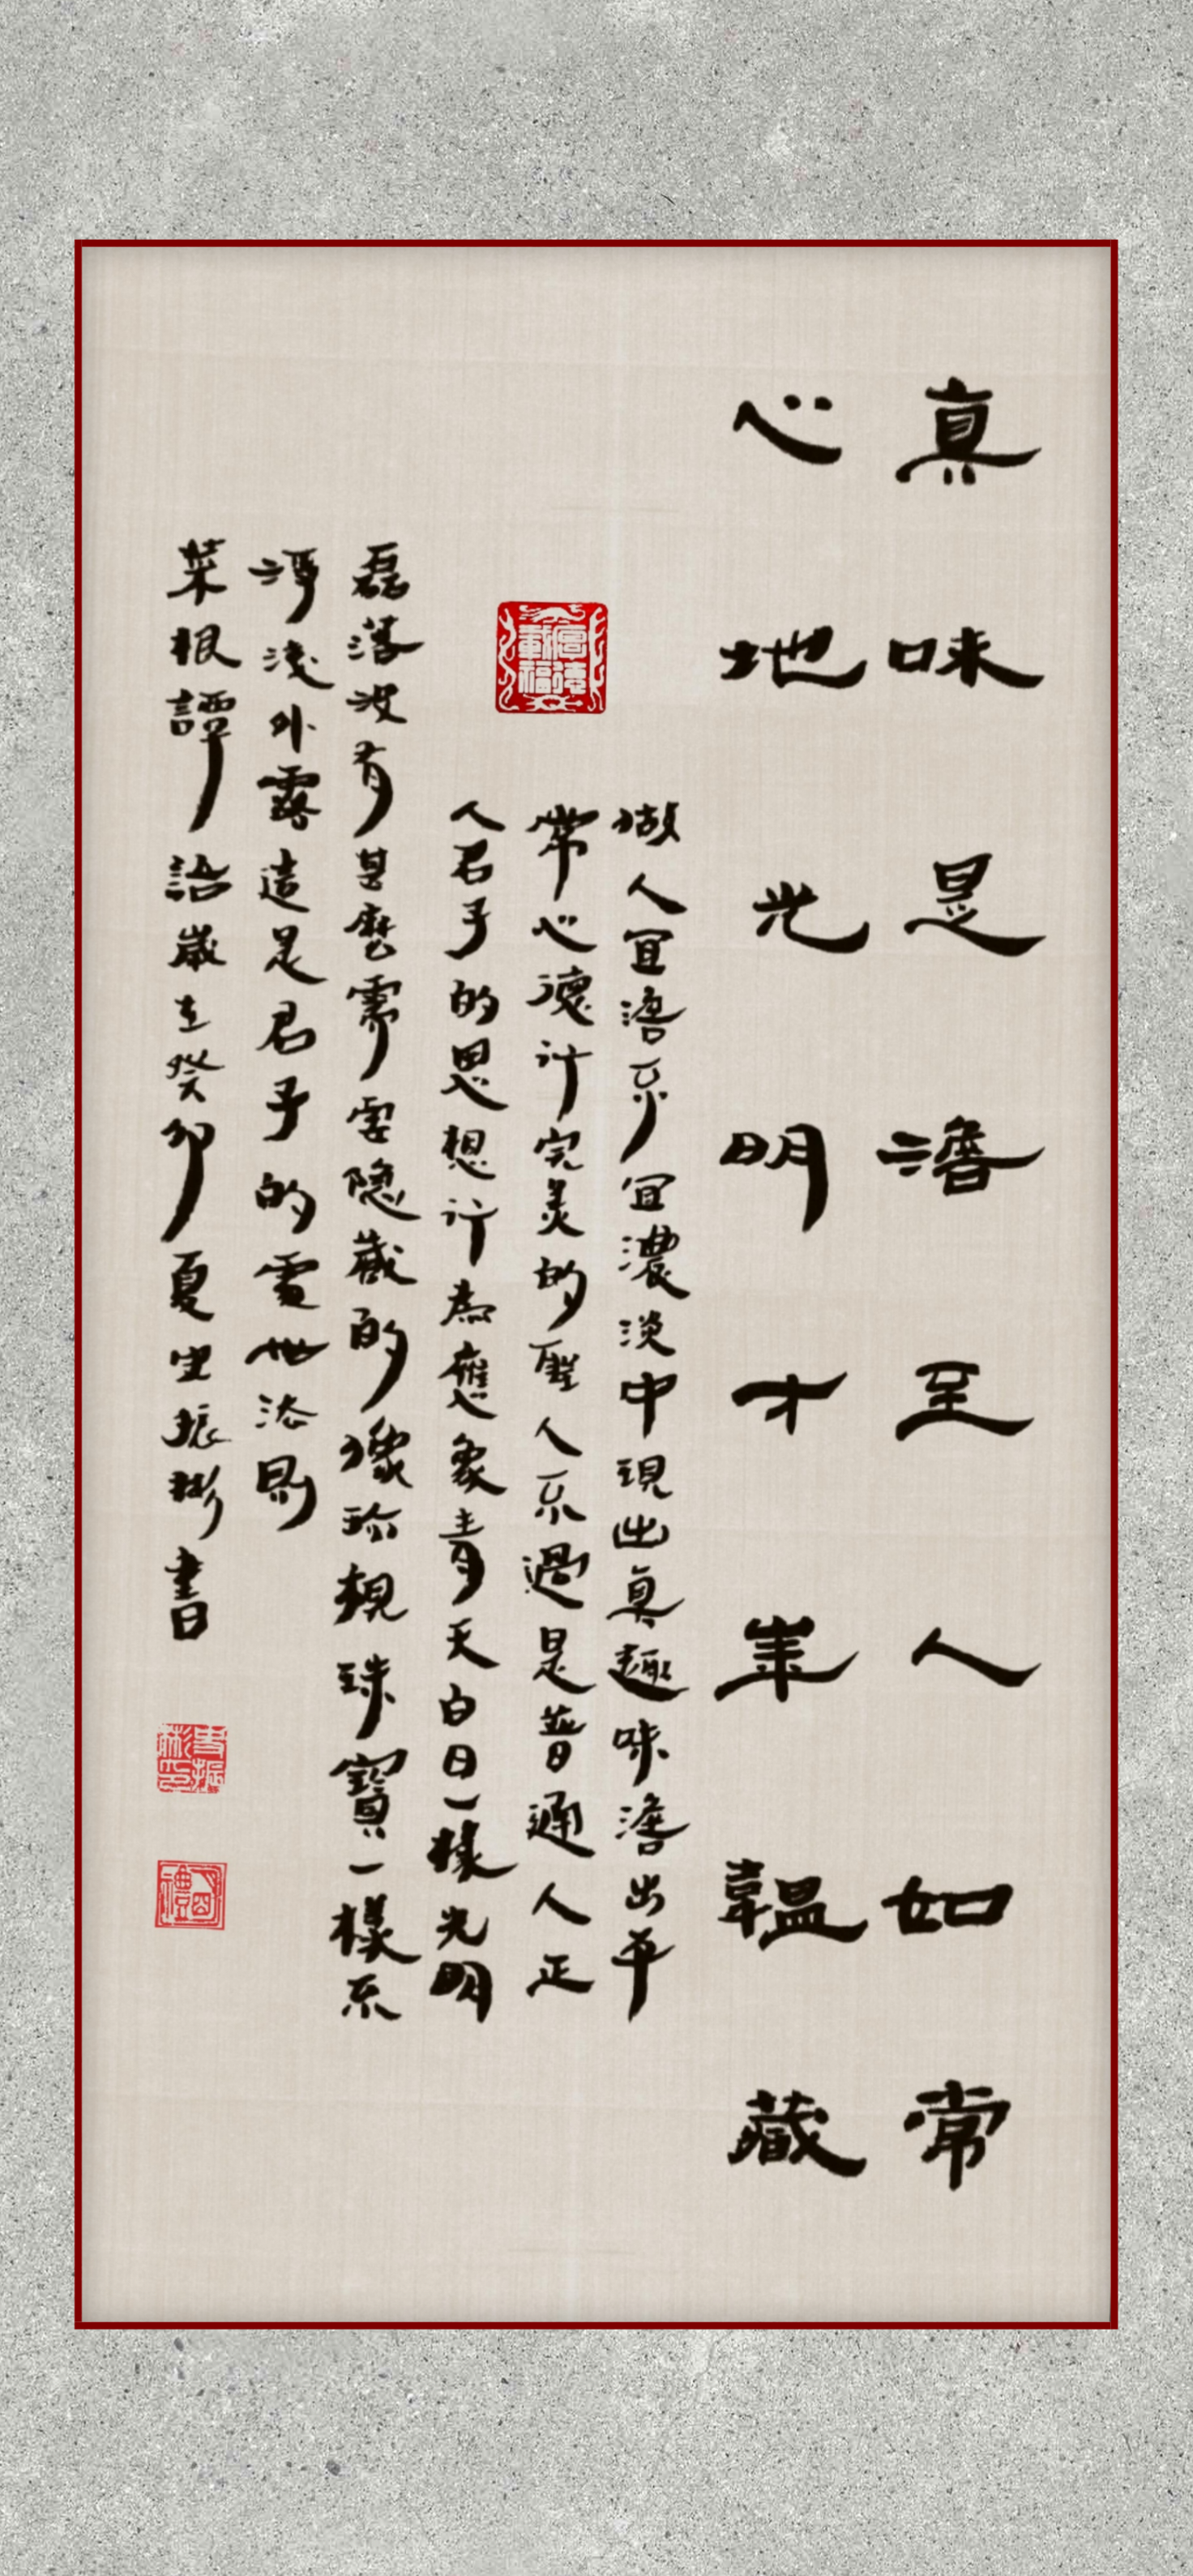 真味是澹至人如常
心地光明才華韞藏
做人宜澹不宜濃淡中現出真趣味澹出平
常心德行完美的聖人不過是普通人正
人君子的思想行為應象青天白日一樣光明
磊落没有甚麼需要隐藏的像珍視珠寶一樣不
浮淺外露這是君子的處世法則
菜根譚語歲在癸卯夏史振彬書
史振彬印